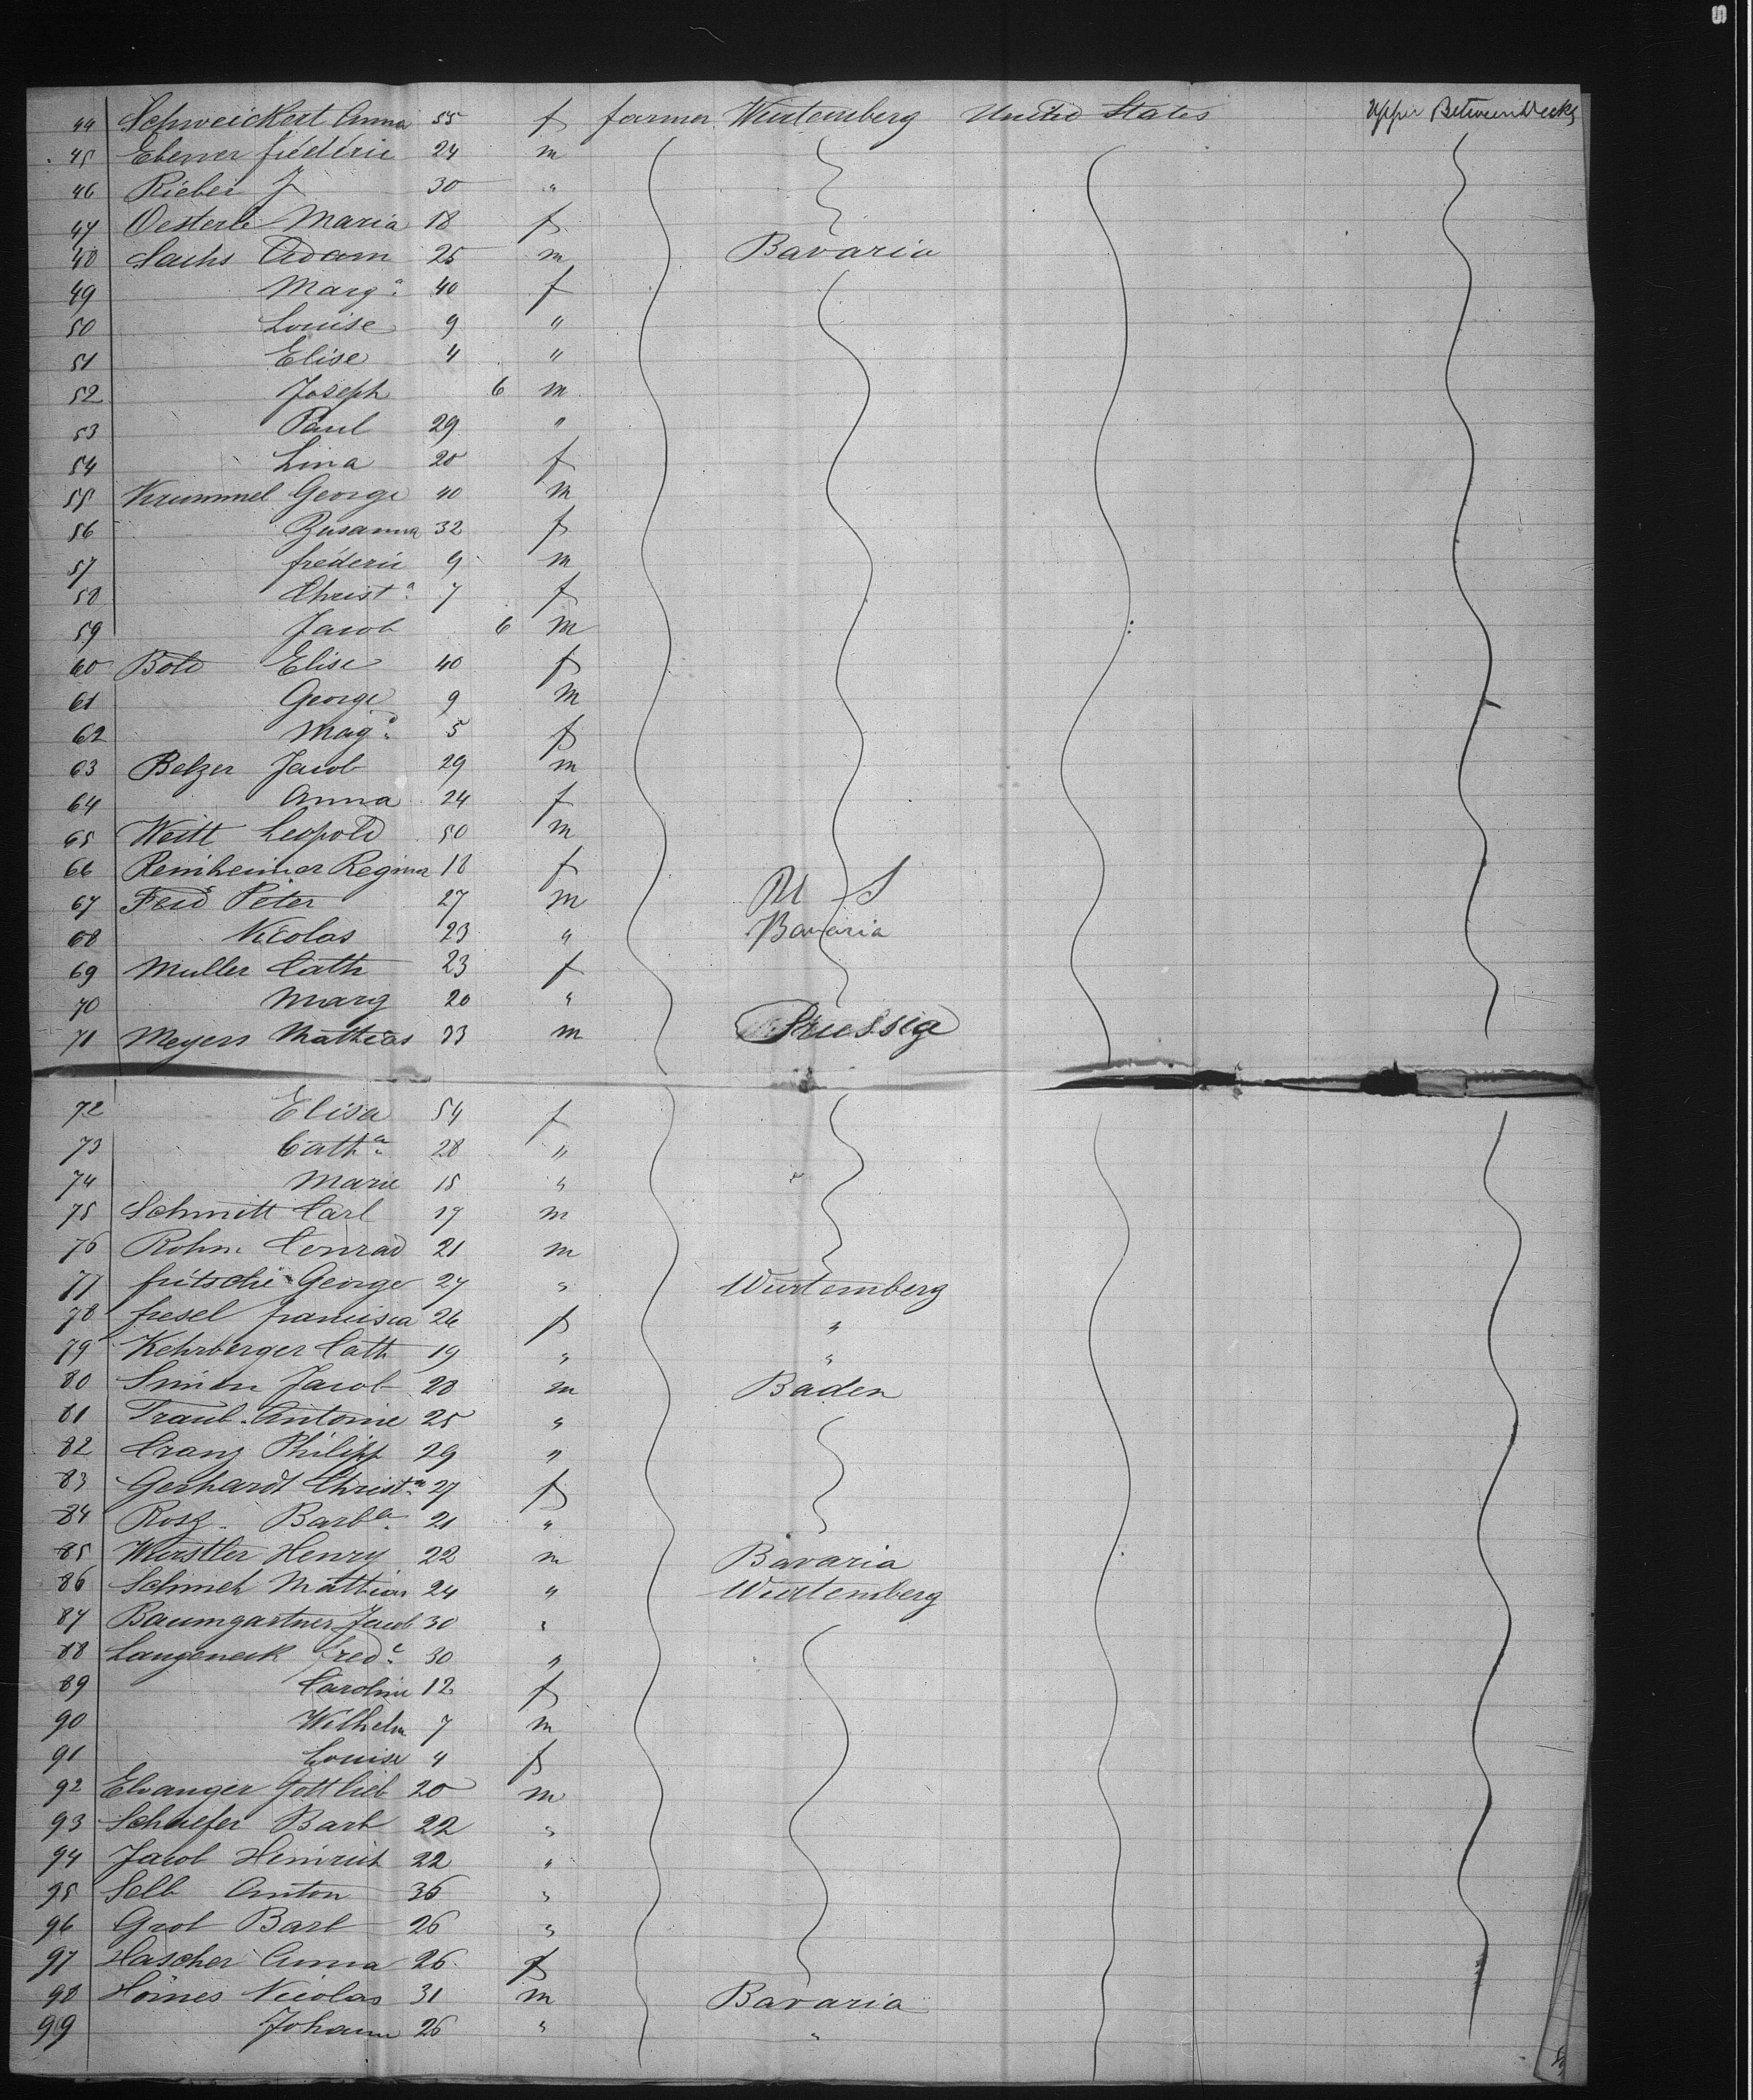 44 Schweickert Anna 55 f farmer Wurtemberg United States Upper Between Decks
45 Ebener frédéric 24 m
46 Rieber J 30 "
47 Oesterle Maria 18 f
48 Sachs Adam 25 m Bavaria
49 Marg.a 40 f
50 Louise 9 "
51 Elise 4 "
52 Joseph 6 m
53 Paul 29 "
54 Lina 20 f
55 Krummel George 40 m
56 Zusanna 32 f
57 fréderic 9 m
58 Christ.a 7 f
59 Jacob 6 m
60 Bold Elise 40 f
61 George 9 m
62 Mag.a 5 f
63 Belzer Jacob 29 m
64 Anna 24 f
65 Weitt Leopold 50 m
66 Remheimer Regina 18 f
67 Feid Peter 27 m U S
68 Nicolas 23 " Bavaria
69 Muller Cath 23 f
70 Marg 20 "
71 Meyers Matthias 33 m Prussia
72 Elisa 54 f
73 Cath.a 28 "
74 Marie 15 "
75 Schmitt Carl 17 m
76 Rohm Conrad 21 m
77 fritschi George 27 " Wurtemberg
78 fresel francisca 26 f "
79 Kehrberger Cath 19 " "
80 Simon Jacob 28 m Baden
81 Traub Antoine 25 "
82 Cranz Philipp 29 "
83 Gerhardt Christ.a 27 f
84 Rosz Barb.a 21 "
85 Wurstler Henry 22 m Bavaria
86 Schmeh Mathias 24 " Wurtemberg
87 Baumgartner Jacob 30 "
88 Langeneck fred.c 30 "
89 Caroline 12 f
90 Wilhelm 7 m
91 Louise 4 f
92 Elvanger Gottlieb 20 m
93 Schaefer Barb 22 "
94 Jacob Heinrich 22 "
95 Selb Anton 36 "
96 Grob Barb 26 "
97 Hascher Anna 26 f
98 Hoines Nicolas 31 m Bavaria
99 Johann 26 " "